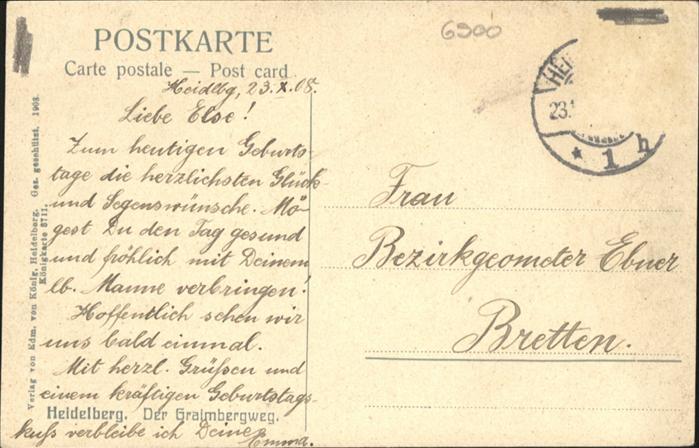 POSTKARTE
Carte postale — Post card
6900
Heidlbg, 23.X.08.
Liebe Else!
Zum heutigen Geburts-
tage die herzlichsten Glück-
und Segenswünsche. Mö-
gest Du den Tag gesund
und fröhlich mit Deinem
lb. Manne verbringen!
Hoffentlich sehen wir
uns bald einmal.
Mit herzl. Grüßen und
einem kräftigen Geburtstags-
kuß verbleibe ich Deine
Emma.
Heidelberg, Der Graimbergweg.
Verlag von Edm. von König, Heidelberg. Ges. geschützt. 1908.
Königkarte 8711.
HEI
23.
* 1 h
Frau
Bezirkgeometer Ebner
Bretten.